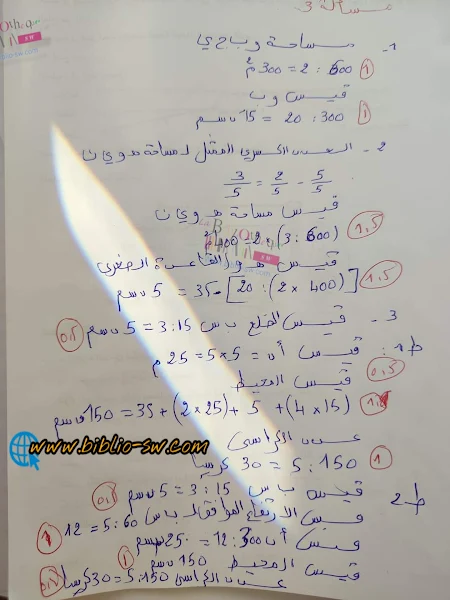 مسألة 3
1- مساحة و ب ج ي
600 : 2 = 300 م²
1
قيس و ب
300 : 20 = 15 م
1
2- العدد الكسري الممثل لـ مساحة هـ و ي ن
5/5 - 2/5 = 3/5
قيس مساحة هـ و ي ن
(600 : 3) × 2 = 400 م²
1,5
قيس هـ و (القاعدة الصغرى)
[(400 × 2) : 20] - 35 = 5 م
1,5
3- قيس الضلع ب س 15 : 3 = 5 م
0,5
ط1: قيس أ د = 5 × 5 = 25 م
0,5
قيس المحيط
(15 × 4) + 5 + (25 × 2) + 35 = 150 م
عدد الكراسي
www.biblio-sw.com
150 : 5 = 30 كرسيا
1
ط2 قيس ب س 15 : 3 = 5 م
قيس الارتفاع الموافق لـ ب س 60 : 5 = 12
1
قيس أ د 300 : 12 = 25 م
1
قيس المحيط 150 م
عدد الكراسي 150 : 5 = 30 كرسيا